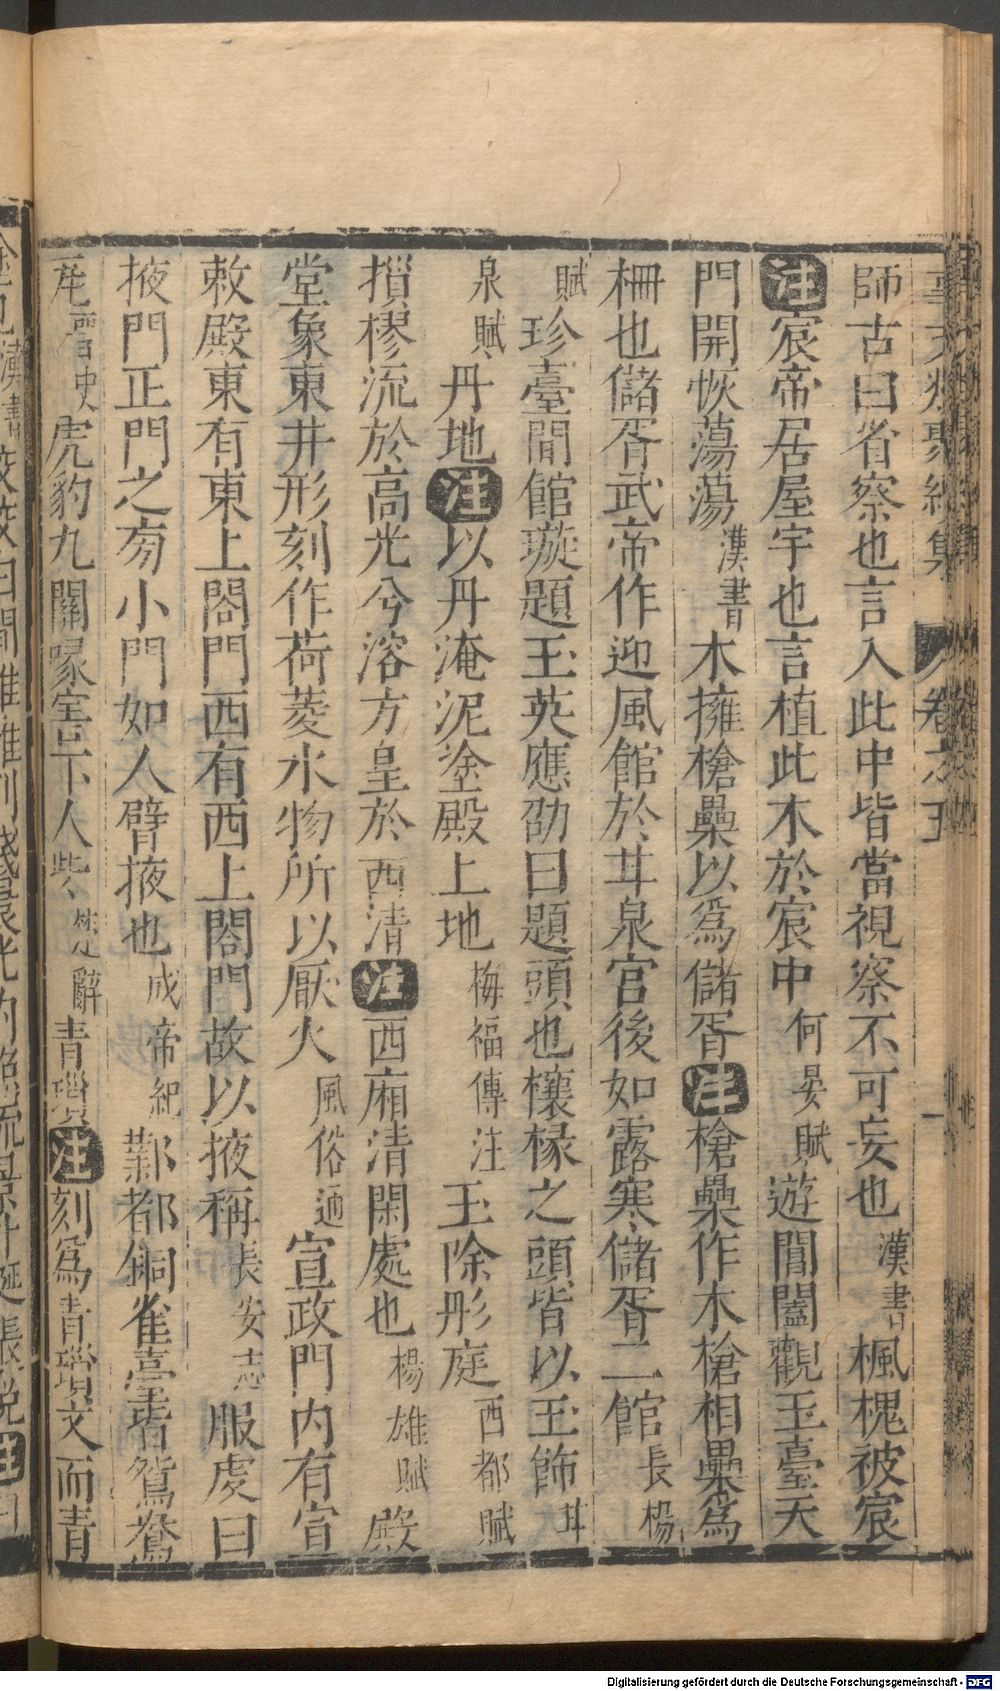 師古曰省察也言入此中皆當視察不可妄也漢書楓槐被宸
注宸帝居屋宇也言植此木於宸中何晏賦遊閶闔觀玉臺天
門開恢蕩蕩漢書木擁槍纍以為儲胥注槍纍作木槍相纍為
柵也儲胥武帝作迎風館於甘泉宮後如露寒儲胥二館長楊
賦珍臺閒館璇題玉英應劭曰題頭也欀椽之頭皆以玉飾甘
泉賦丹地注以丹淹泥塗殿上地梅福傳注玉除彤庭西都賦
損樛流於高光兮溶方皇於西清注西廂清閑處也楊雄賦殿
堂象東井形刻作荷菱水物所以厭火風俗通宣政門內有宣
敕殿東有東上閤門西有西上閤門故以掖稱長安志服虔曰
掖門正門之旁小門如人臂掖也成帝紀鄴都銅雀臺皆鴛鴦
瓦 虎豹九關啄害下人些楚辭青瑣注刻為青瑣文而青
卷之五
Digitalisierung gefördert durch die Deutsche Forschungsgemeinschaft - DFG